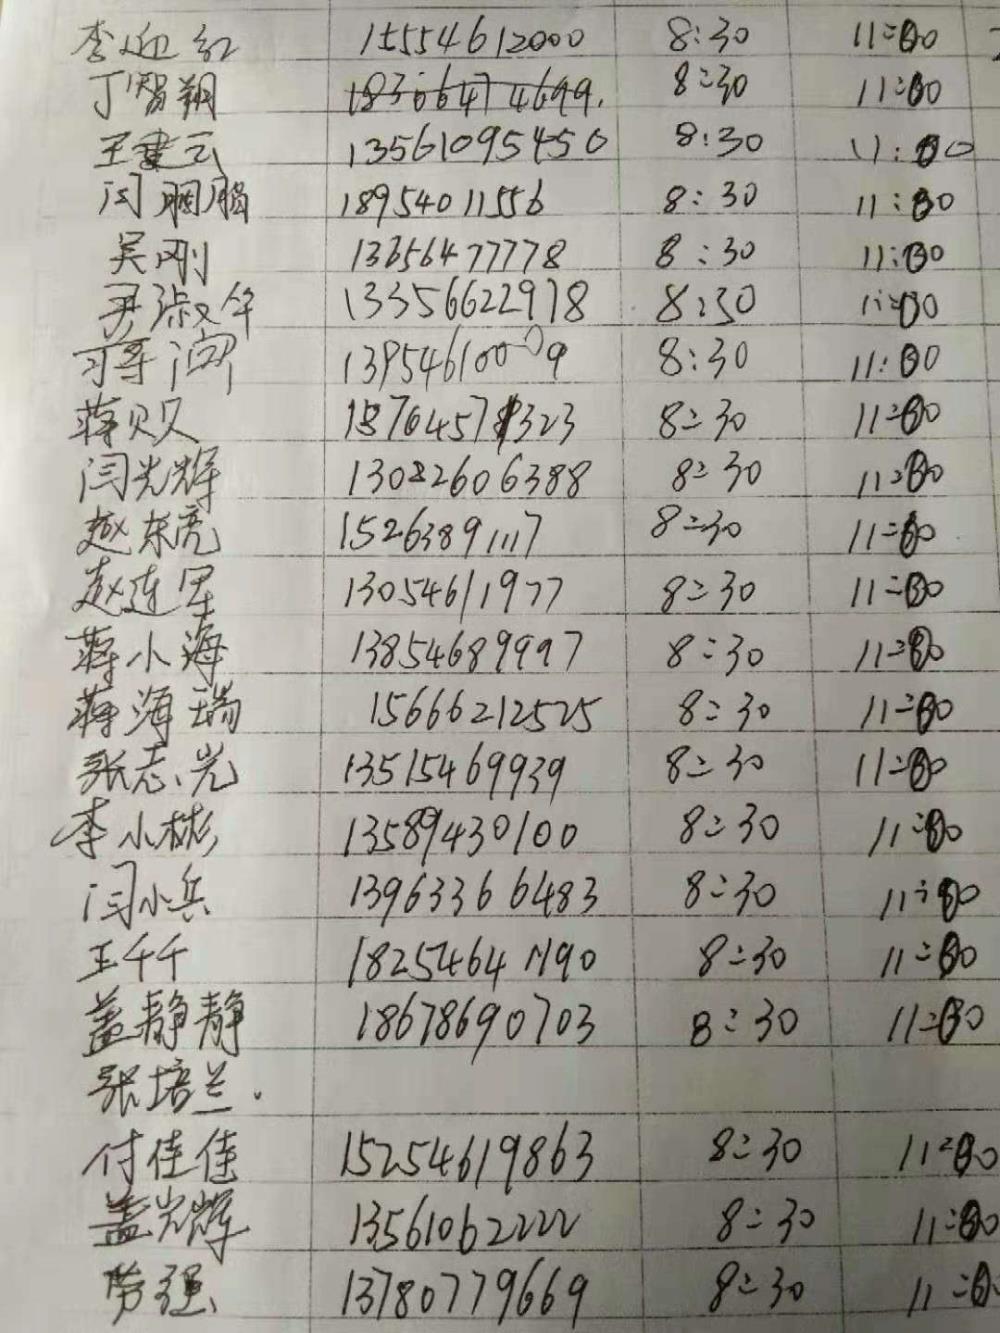 李迎红 15554612000 8:30 11:00
丁智翔 18366474699. 8:30 11:00
王建云 13561095450 8:30 11:00
闫胭脂 18954011556 8:30 11:00
吴刚 13656477778 8:30 11:00
尹淑华 13356622978 8:30 11:00
13954610009 8:30 11:00
蒋贝贝 8:30 11:00
闫光辉 13082606388 8:30 11:00
赵东亮 15263891117 8:30 11:00
赵连军 13054611977 8:30 11:00
蒋小海 13854689997 8:30 11:00
蒋海瑞 15666212525 8:30 11:00
张志光 13515469939 8:30 11:00
李小彬 13589430100 8:30 11:00
闫小兵 13963366483 8:30 11:00
王千千 18254641190 8:30 11:00
盖静静 18678690703 8:30 11:00
张培兰.
付佳佳 15254619863 8:30 11:00
盖光辉 13561062222 8:30 11:00
劳强 13780779669 8:30 11:00